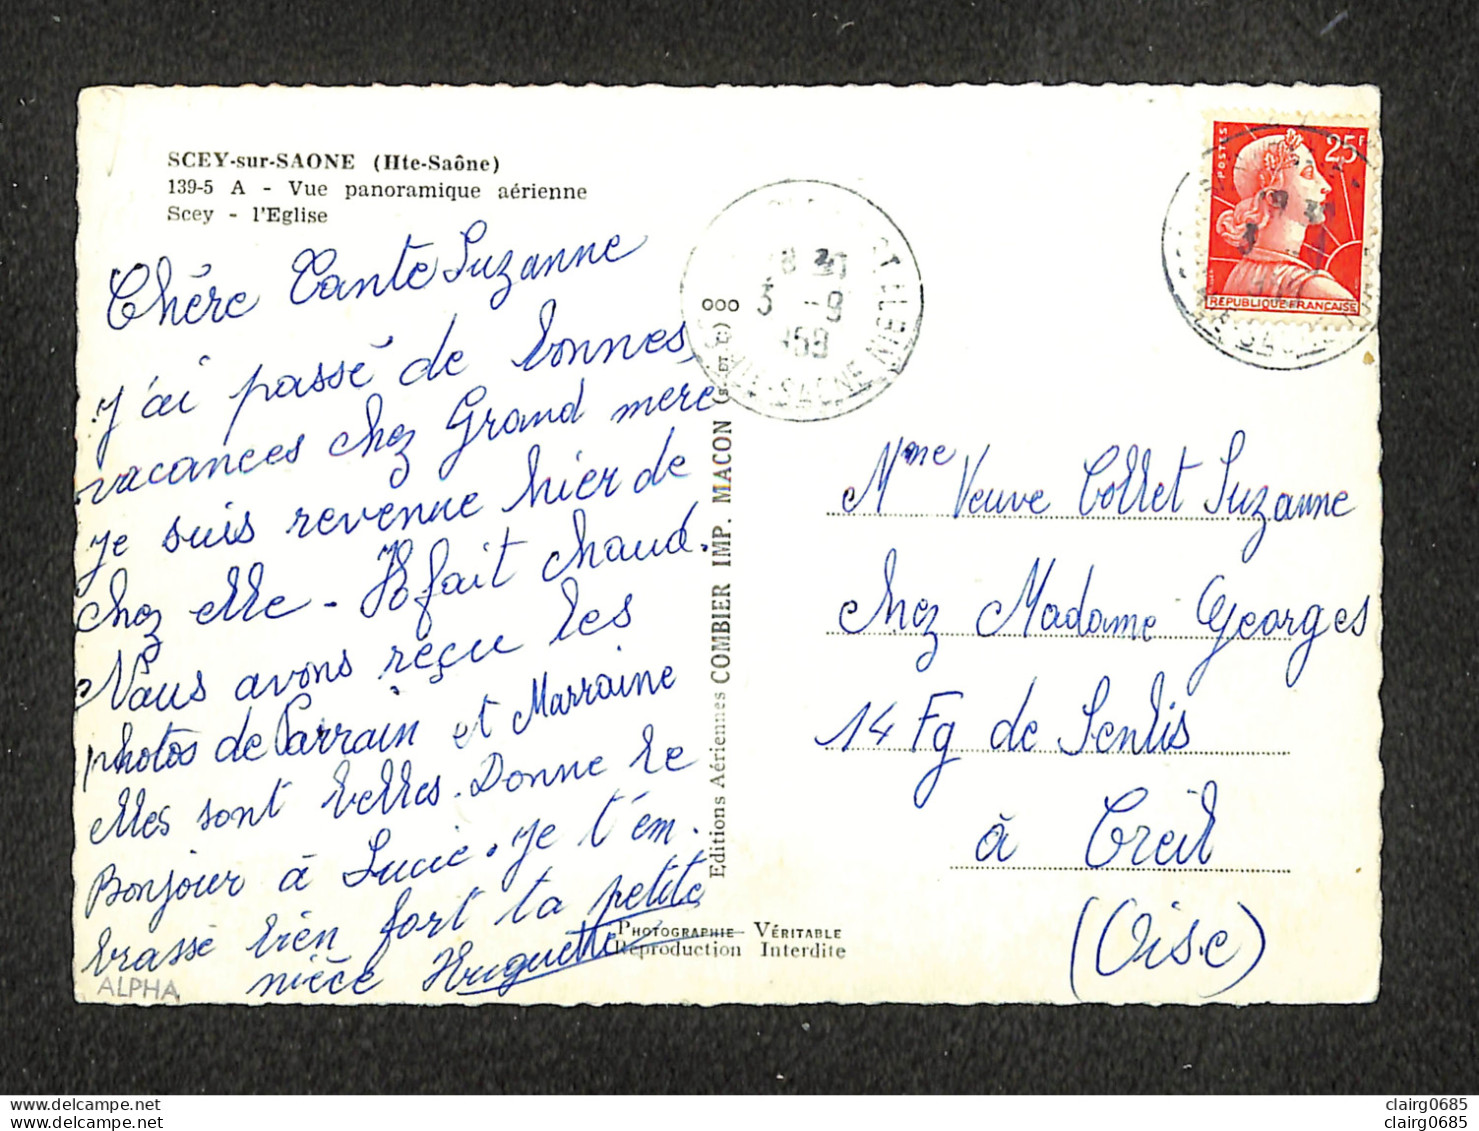 SCEY-sur-SAONE (Hte-Saône)
139-5 A - Vue panoramique aérienne
Scey - l'Eglise
Chère Tante Suzanne
J'ai passé de bonnes
vacances chez Grand mere
je suis revenue hier de
chez elle - Il fait chaud.
Nous avons reçu les
photos de Parrain et Marraine
elles sont belles. Donne le
Bonjour à Lucie. Je t'em.
brasse bien fort ta petite
nièce Huguette
ALPHA
Editions Aériennes COMBIER IMP. MACON (S. ET L.)
PHOTOGRAPHIE VÉRITABLE
Reproduction Interdite
3 -9
SAONE
POSTES
25F
REPUBLIQUE FRANÇAISE
Mme Veuve Collet Suzanne
chez Madame Georges
14 Fg de Senlis
à Creil
(Oise)
clairg0685
clairg0685
www.delcampe.net
www.delcampe.net